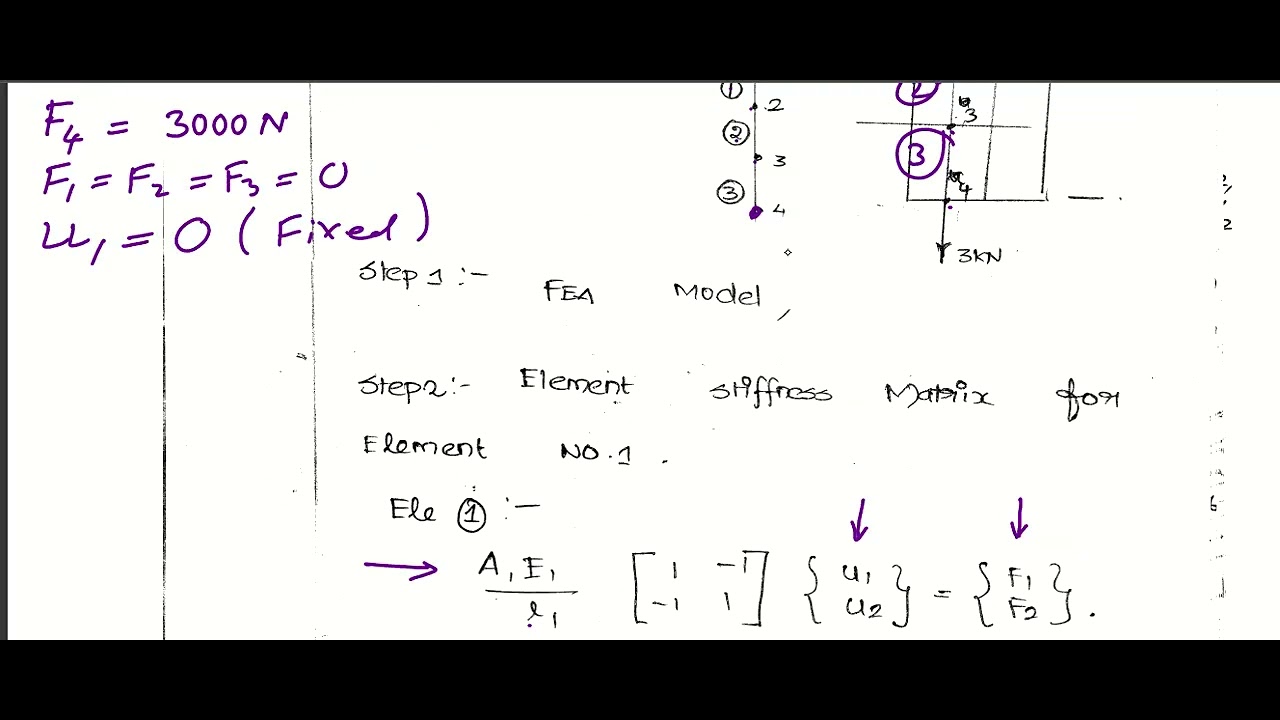 F₄ = 3000 N
F₁ = F₂ = F₃ = 0
u₁ = 0 (Fixed)
① 2
② 3
③ 4
3
③
4
3KN
Step 1 :-
FEA Model,
Step2:- Element stiffness Matrix for
Element NO.1 .
Ele ① :-
A₁E₁/l₁ [1 -1; -1 1] {u₁; u₂} = {F₁; F₂}.